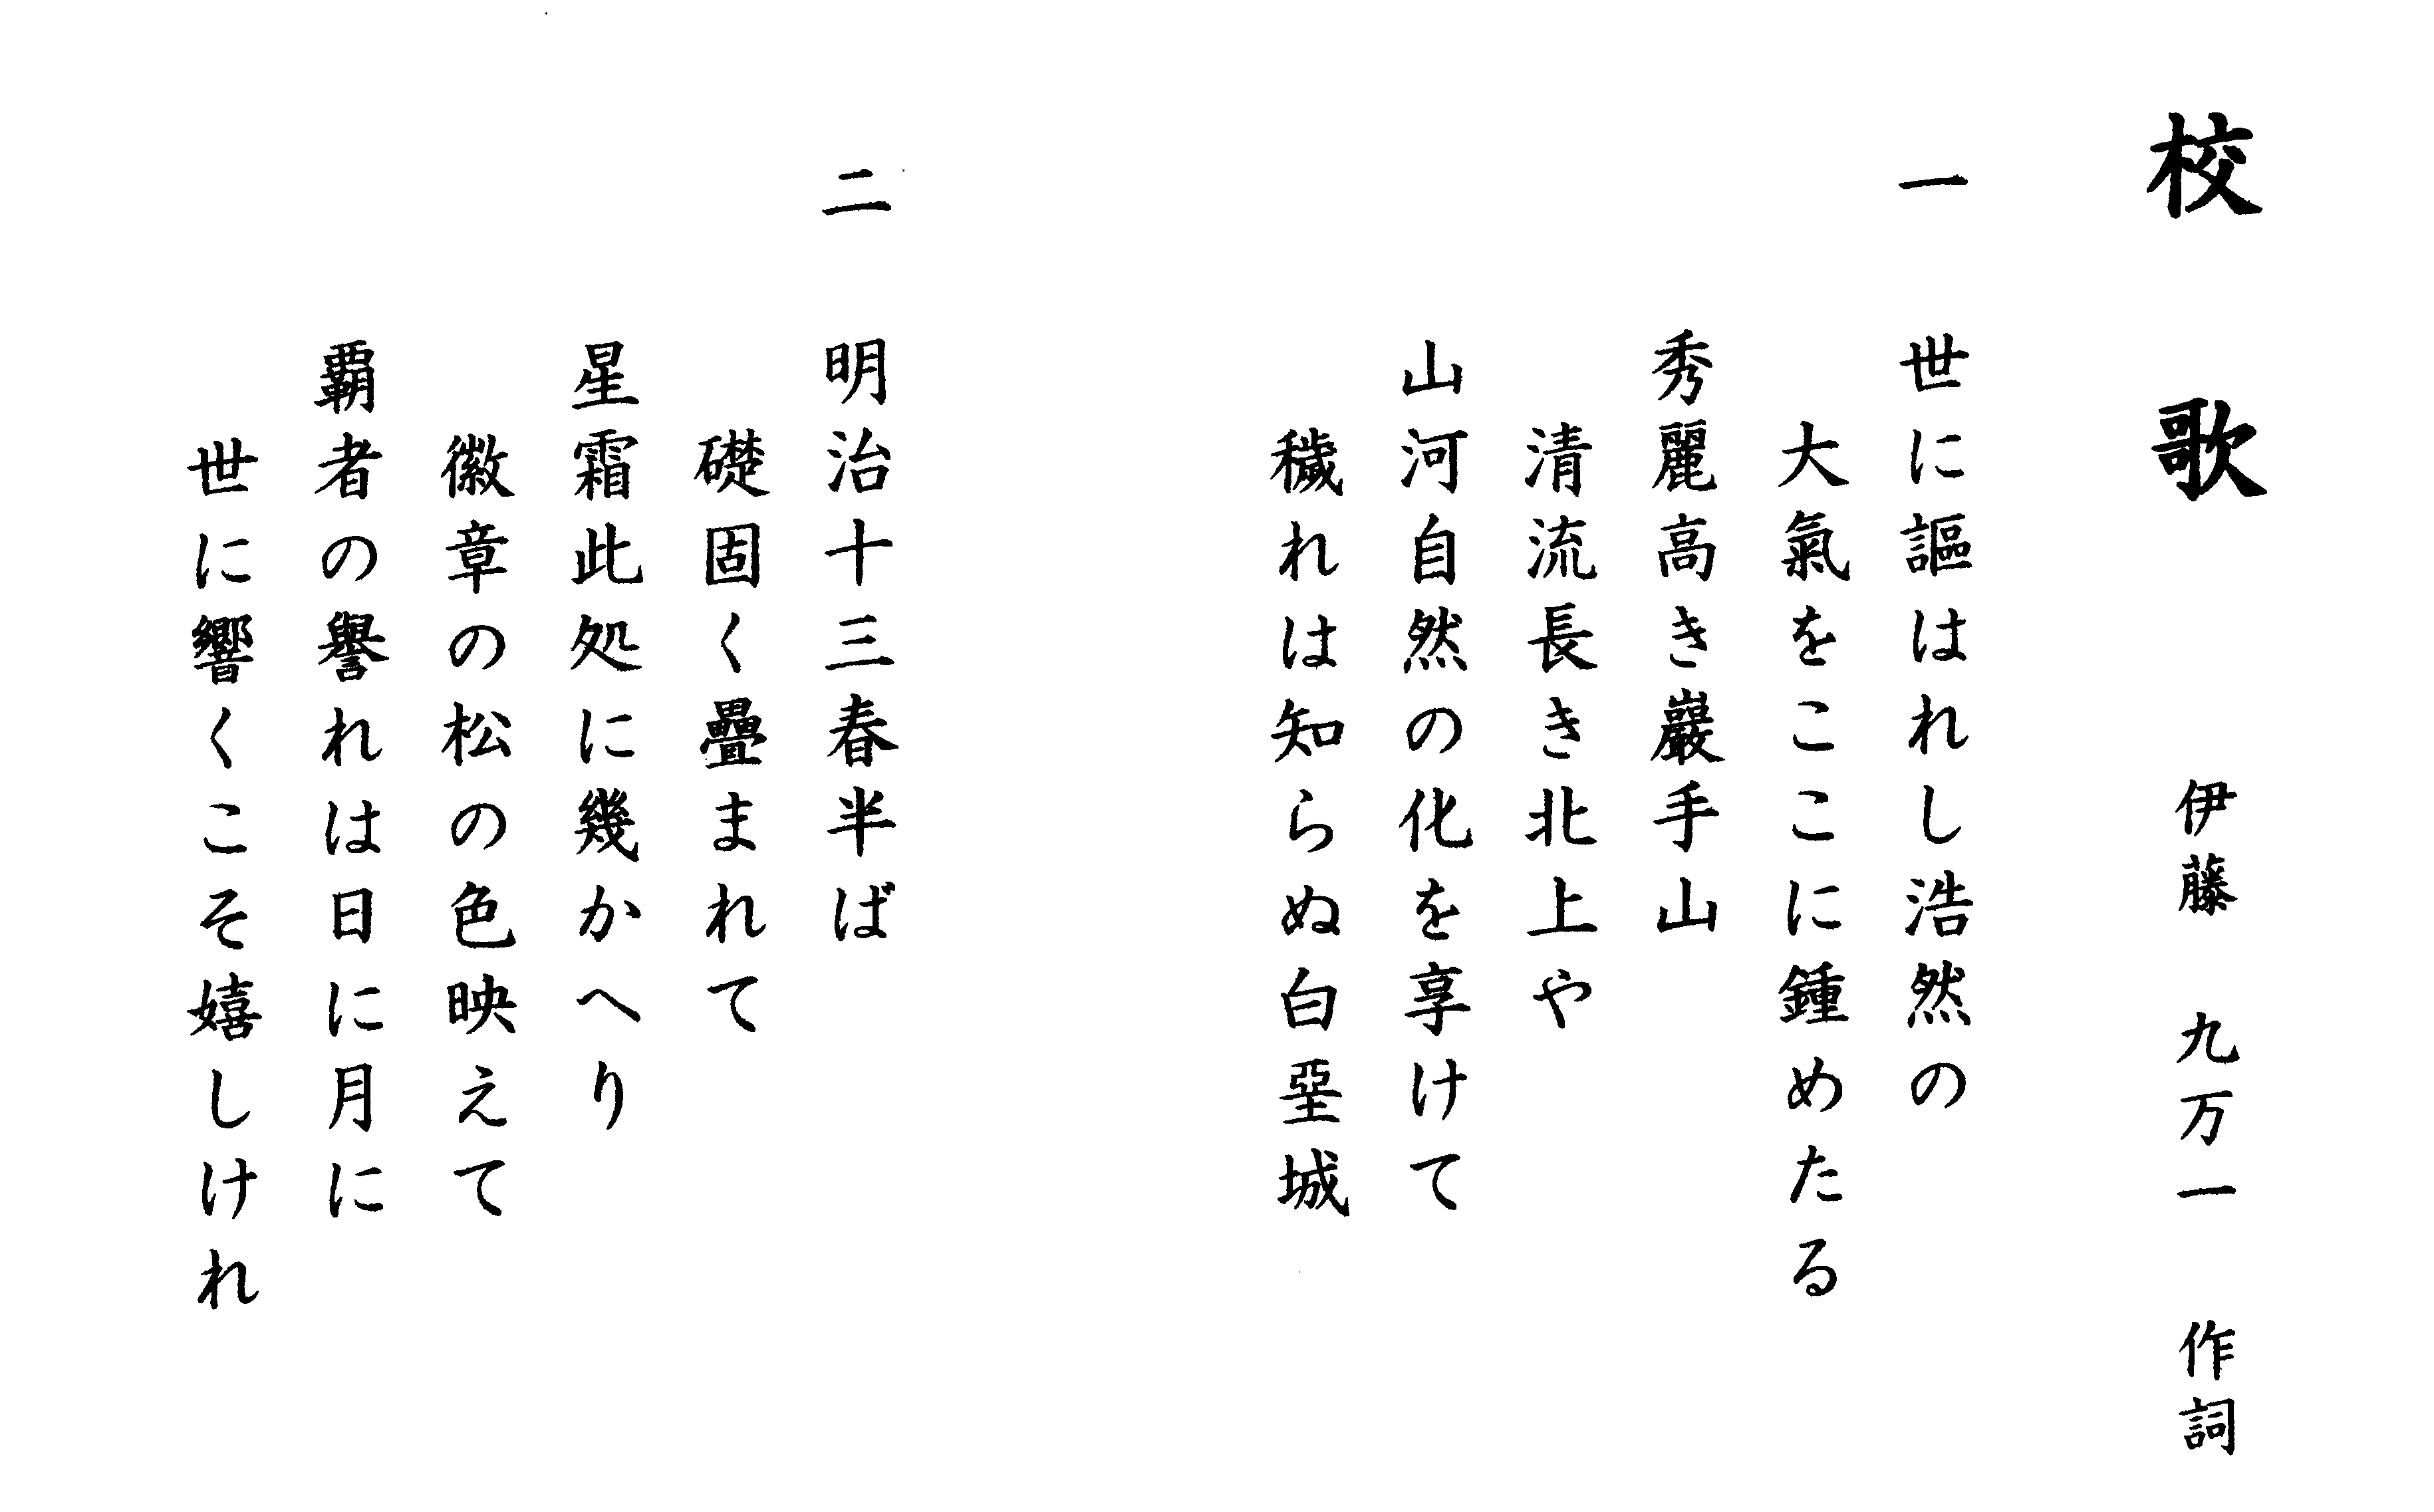 校歌
伊藤 九万一 作詞
一 世に謳はれし浩然の
大氣をここに鍾めたる
秀麗高き巖手山
清流長き北上や
山河自然の化を享けて
穢れは知らぬ白堊城
二 明治十三春半ば
礎固く疊まれて
星霜此処に幾かへり
徽章の松の色映えて
覇者の譽れは日に月に
世に響くこそ嬉しけれ